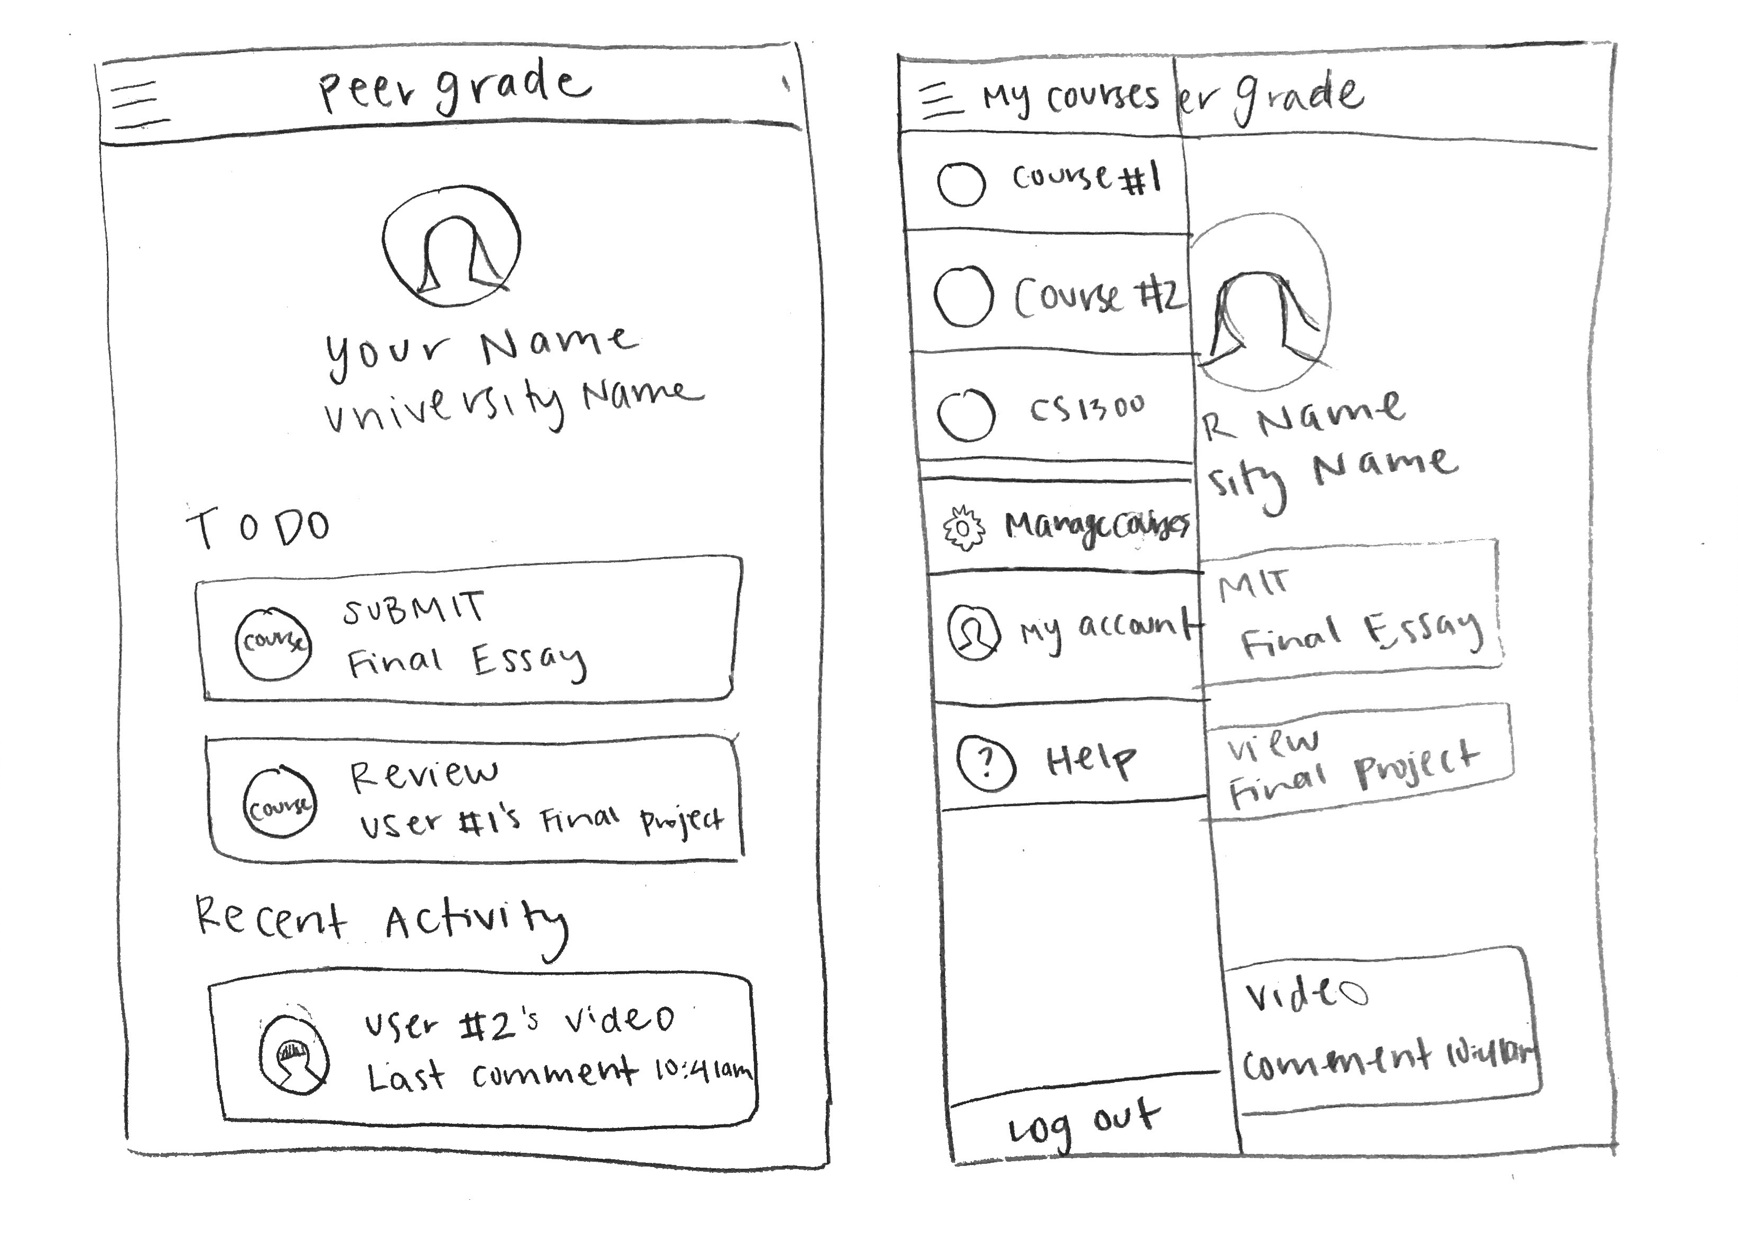 Peer grade
Your Name
University Name
TO DO
course
SUBMIT
Final Essay
course
Review
User #1's Final project
Recent Activity
User #2's video
Last comment 10:41am
My courses
er grade
Course #1
Course #2
CS1300
Manage courses
My account
Help
Log out
R Name
sity Name
MIT
Final Essay
view
Final project
video
comment 10:41am